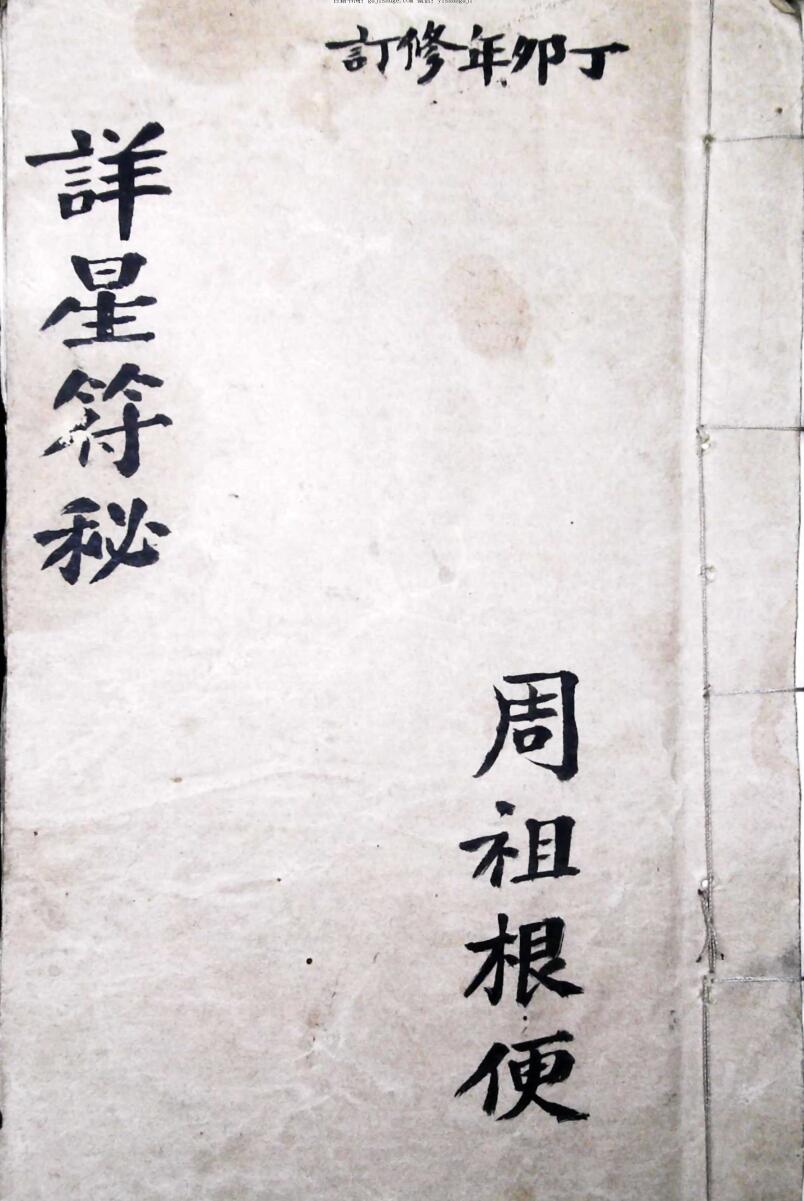 丁卯年修訂
詳星符秘
周祖根便